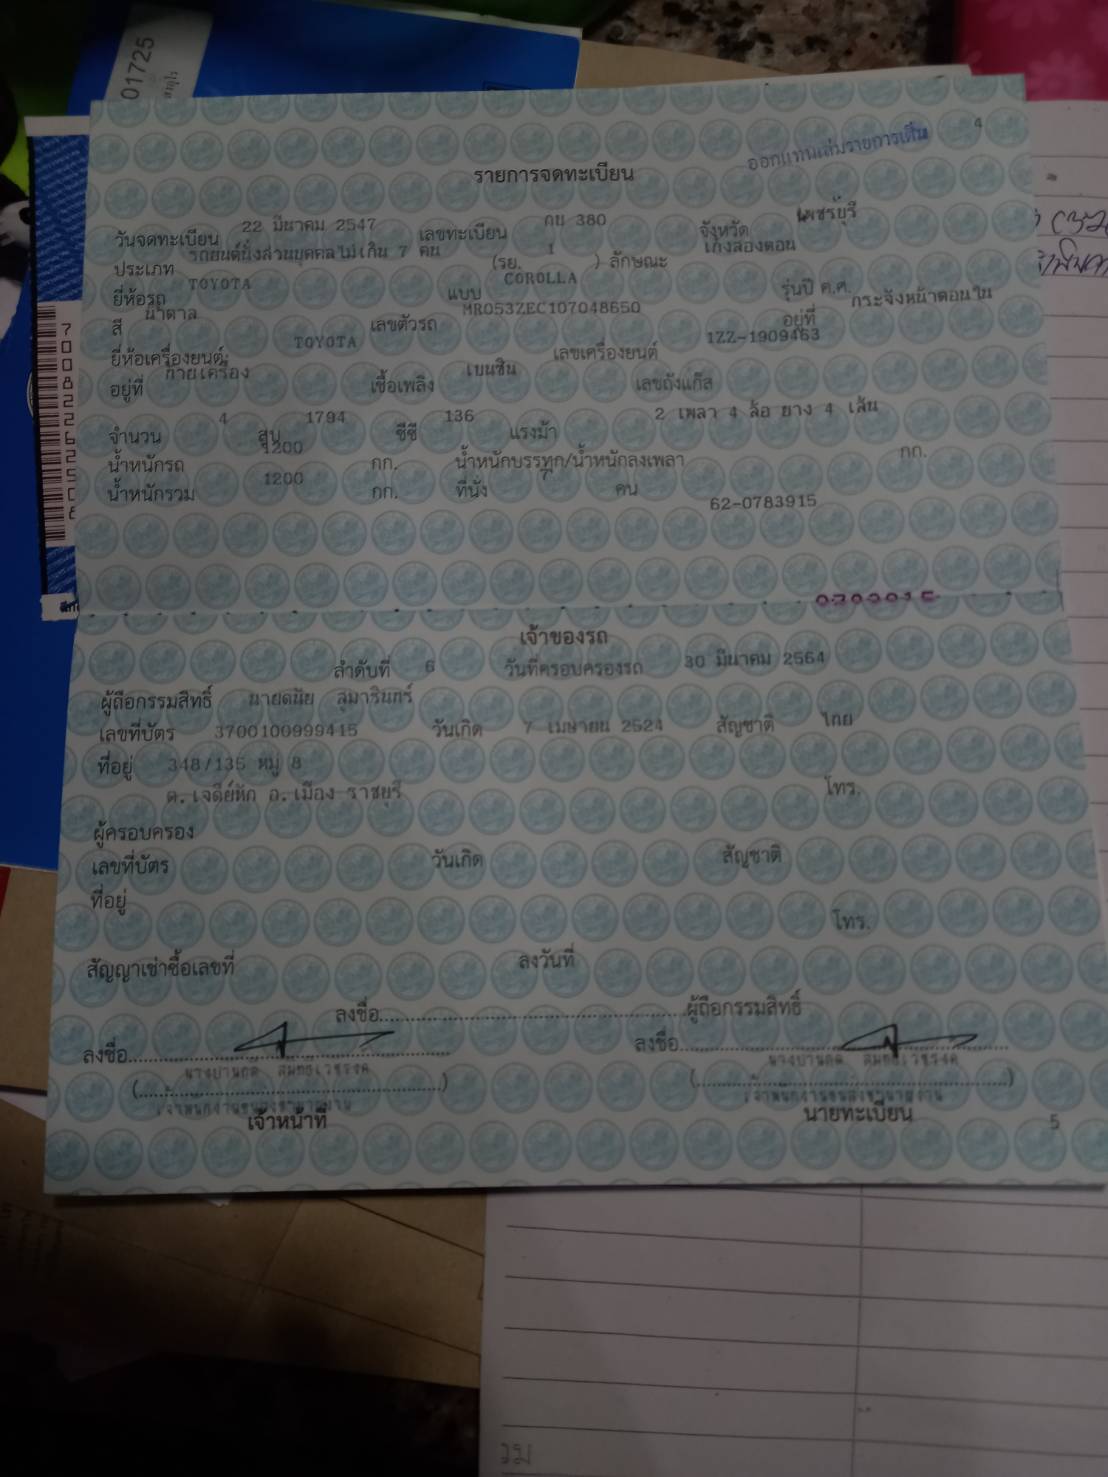 01725
ออกแทนเล่มรายการเดิม
4
รายการจดทะเบียน
วันจดทะเบียน 22 มีนาคม 2547 เลขทะเบียน กบ 380 จังหวัด เพชรบุรี
ประเภท รถยนต์นั่งส่วนบุคคลไม่เกิน 7 คน (รย. 1 ) ลักษณะ เก๋งสองตอน
ยี่ห้อรถ TOYOTA แบบ COROLLA รุ่นปี ค.ศ.
สี น้ำตาล เลขตัวรถ MR053ZEC107048650 อยู่ที่ กระจังหน้าตอนใน
ยี่ห้อเครื่องยนต์ TOYOTA เลขเครื่องยนต์ 1ZZ-1909463
อยู่ที่ ท้ายเครื่อง เชื้อเพลิง เบนซิน เลขถังแก๊ส
จำนวน 4 สูบ 1794 ซีซี 136 แรงม้า 2 เพลา 4 ล้อ ยาง 4 เส้น
น้ำหนักรถ 1200 กก. น้ำหนักบรรทุก/น้ำหนักลงเพลา กก.
น้ำหนักรวม 1200 กก. ที่นั่ง 7 คน
62-0783915
เจ้าของรถ
ลำดับที่ 6 วันที่ครอบครองรถ 30 มีนาคม 2564
ผู้ถือกรรมสิทธิ์ นายดนัย สุมารินทร์
เลขที่บัตร 3700100999415 วันเกิด 7 เมษายน 2524 สัญชาติ ไทย
ที่อยู่ 348/135 หมู่ 8
ต.เจดีย์หัก อ.เมือง ราชบุรี โทร.
ผู้ครอบครอง
เลขที่บัตร วันเกิด สัญชาติ
ที่อยู่
โทร.
สัญญาเช่าซื้อเลขที่ ลงวันที่
ลงชื่อ ผู้ถือกรรมสิทธิ์
ลงชื่อ ลงชื่อ
เจ้าหน้าที่ นายทะเบียน
5